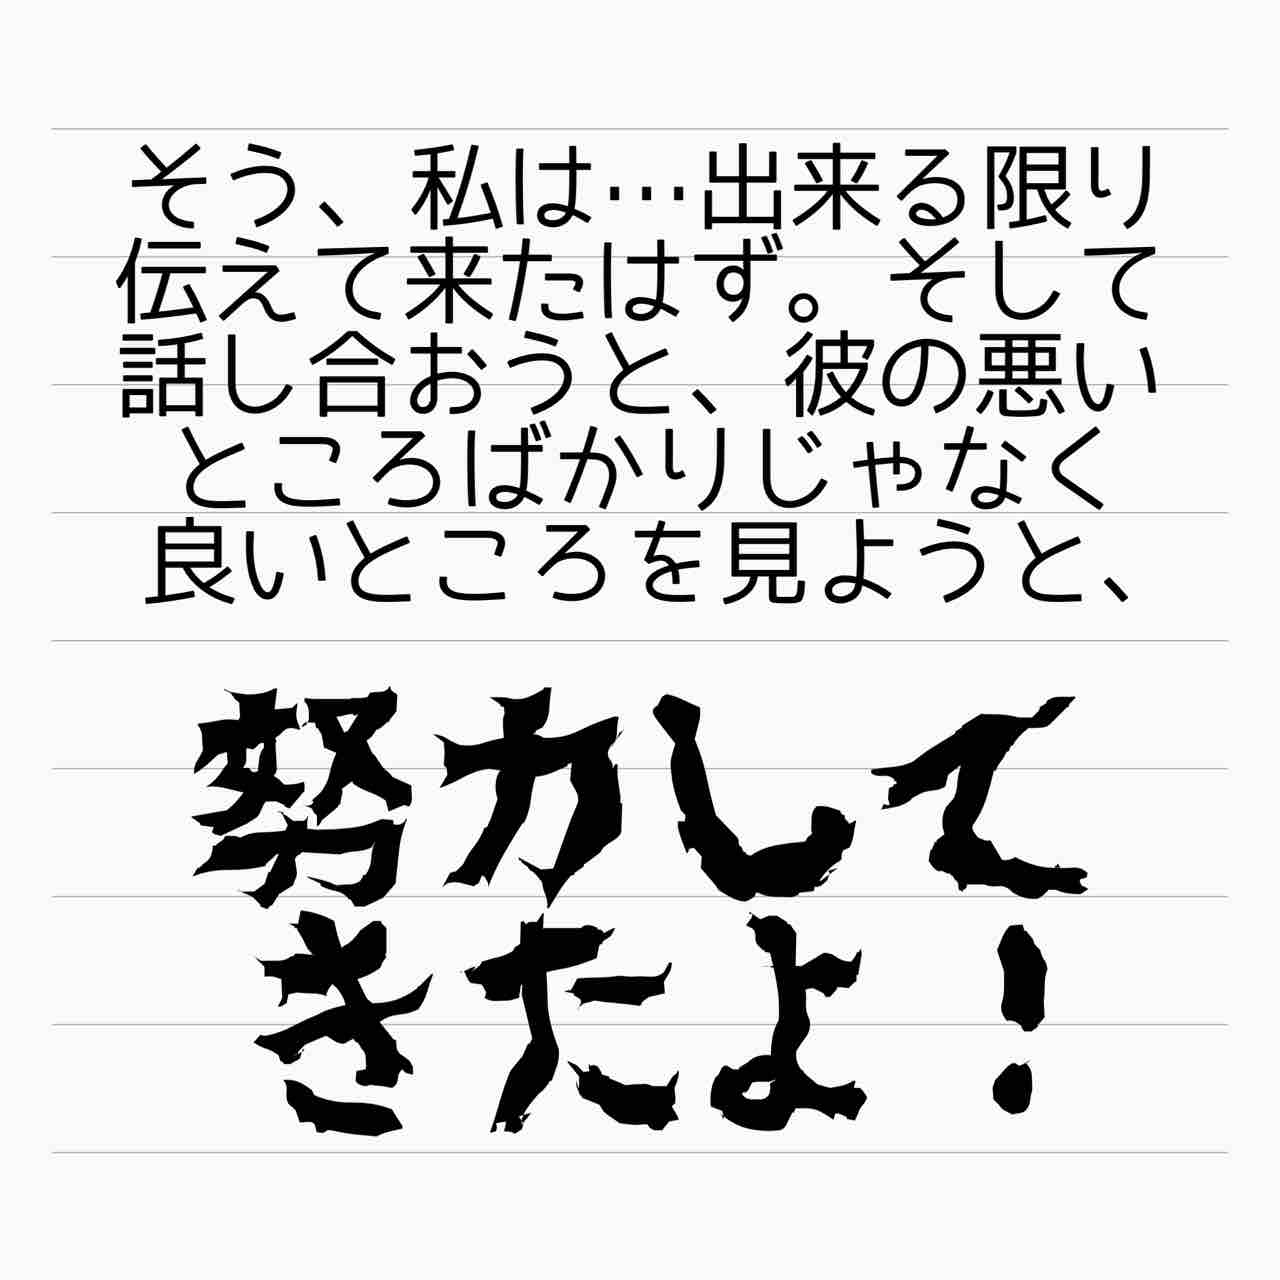 そう、私は…出来る限り
伝えて来たはず。そして
話し合おうと、彼の悪い
ところばかりじゃなく
良いところを見ようと、
努力して
きたよ!